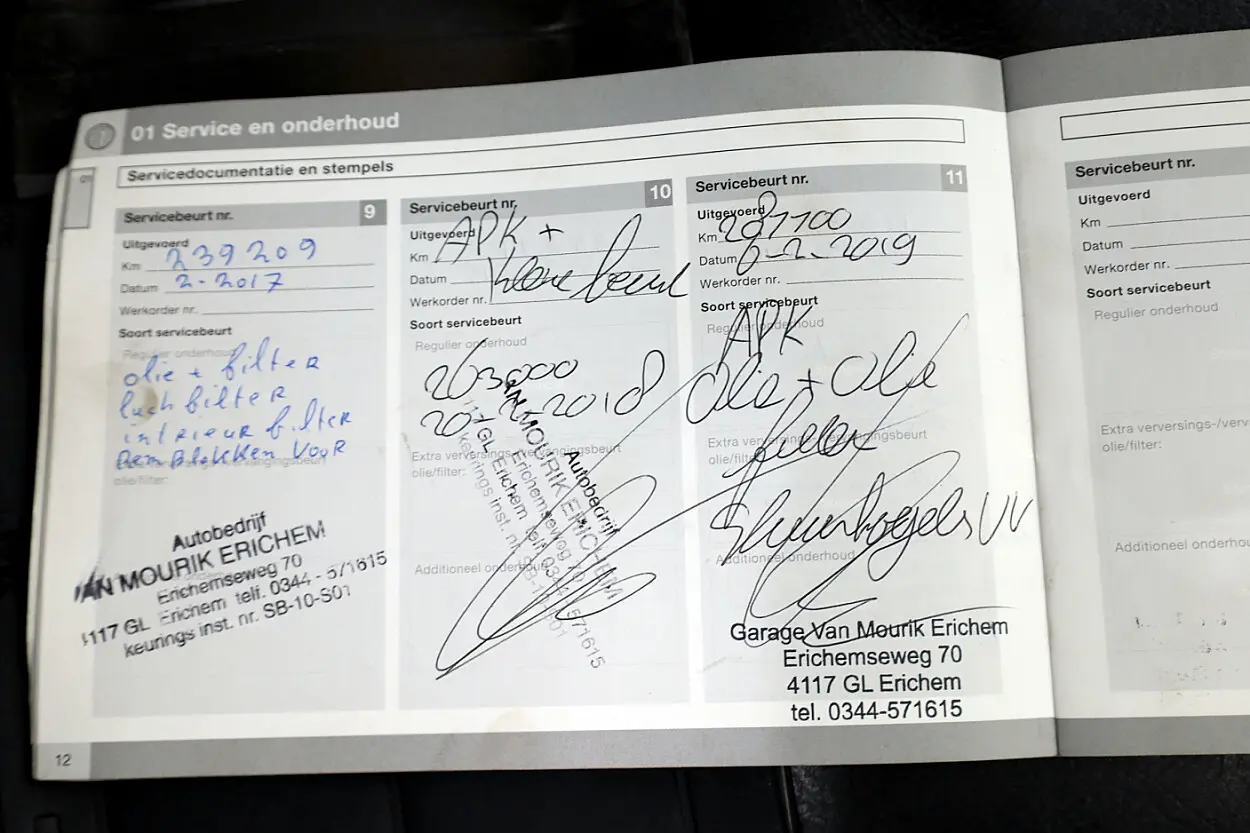 01 Service en onderhoud
01
Servicedocumentatie en stempels
Servicebeurt nr. 9
Uitgevoerd
Km 239209
Datum 2-2017
Werkorder nr.
Soort servicebeurt
Regulier onderhoud
olie + filter
luchfilter
intrieur filter
Remblokken voor
olie/filter:
Autobedrijf
VAN MOURIK ERICHEM
Erichemseweg 70
4117 GL Erichem telf. 0344 - 571615
keurings inst. nr. SB-10-S01
Servicebeurt nr. 10
Uitgevoerd APK +
Km
Datum kleine beurt
Werkorder nr.
Soort servicebeurt
Regulier onderhoud
263000
20-2-2018
Extra verversings-/vervangingsbeurt
olie/filter:
Additioneel onderhoud
Autobedrijf
VAN MOURIK ERICHEM
Erichemseweg 70
4117 GL Erichem telf. 0344 - 571615
keurings inst. nr. SB-10-S01
Servicebeurt nr. 11
Uitgevoerd
Km 287100
Datum 6-2-2019
Werkorder nr.
Soort servicebeurt
Regulier onderhoud
APK
Olie + Olie
filter
Extra verversings-/vervangingsbeurt
olie/filter:
Stuurkogels VV
Additioneel onderhoud
Garage Van Mourik Erichem
Erichemseweg 70
4117 GL Erichem
tel. 0344-571615
12
Servicebeurt nr.
Uitgevoerd
Km
Datum
Werkorder nr.
Soort servicebeurt
Regulier onderhoud
Extra verversings-/verv
olie/filter:
Additioneel onderhou